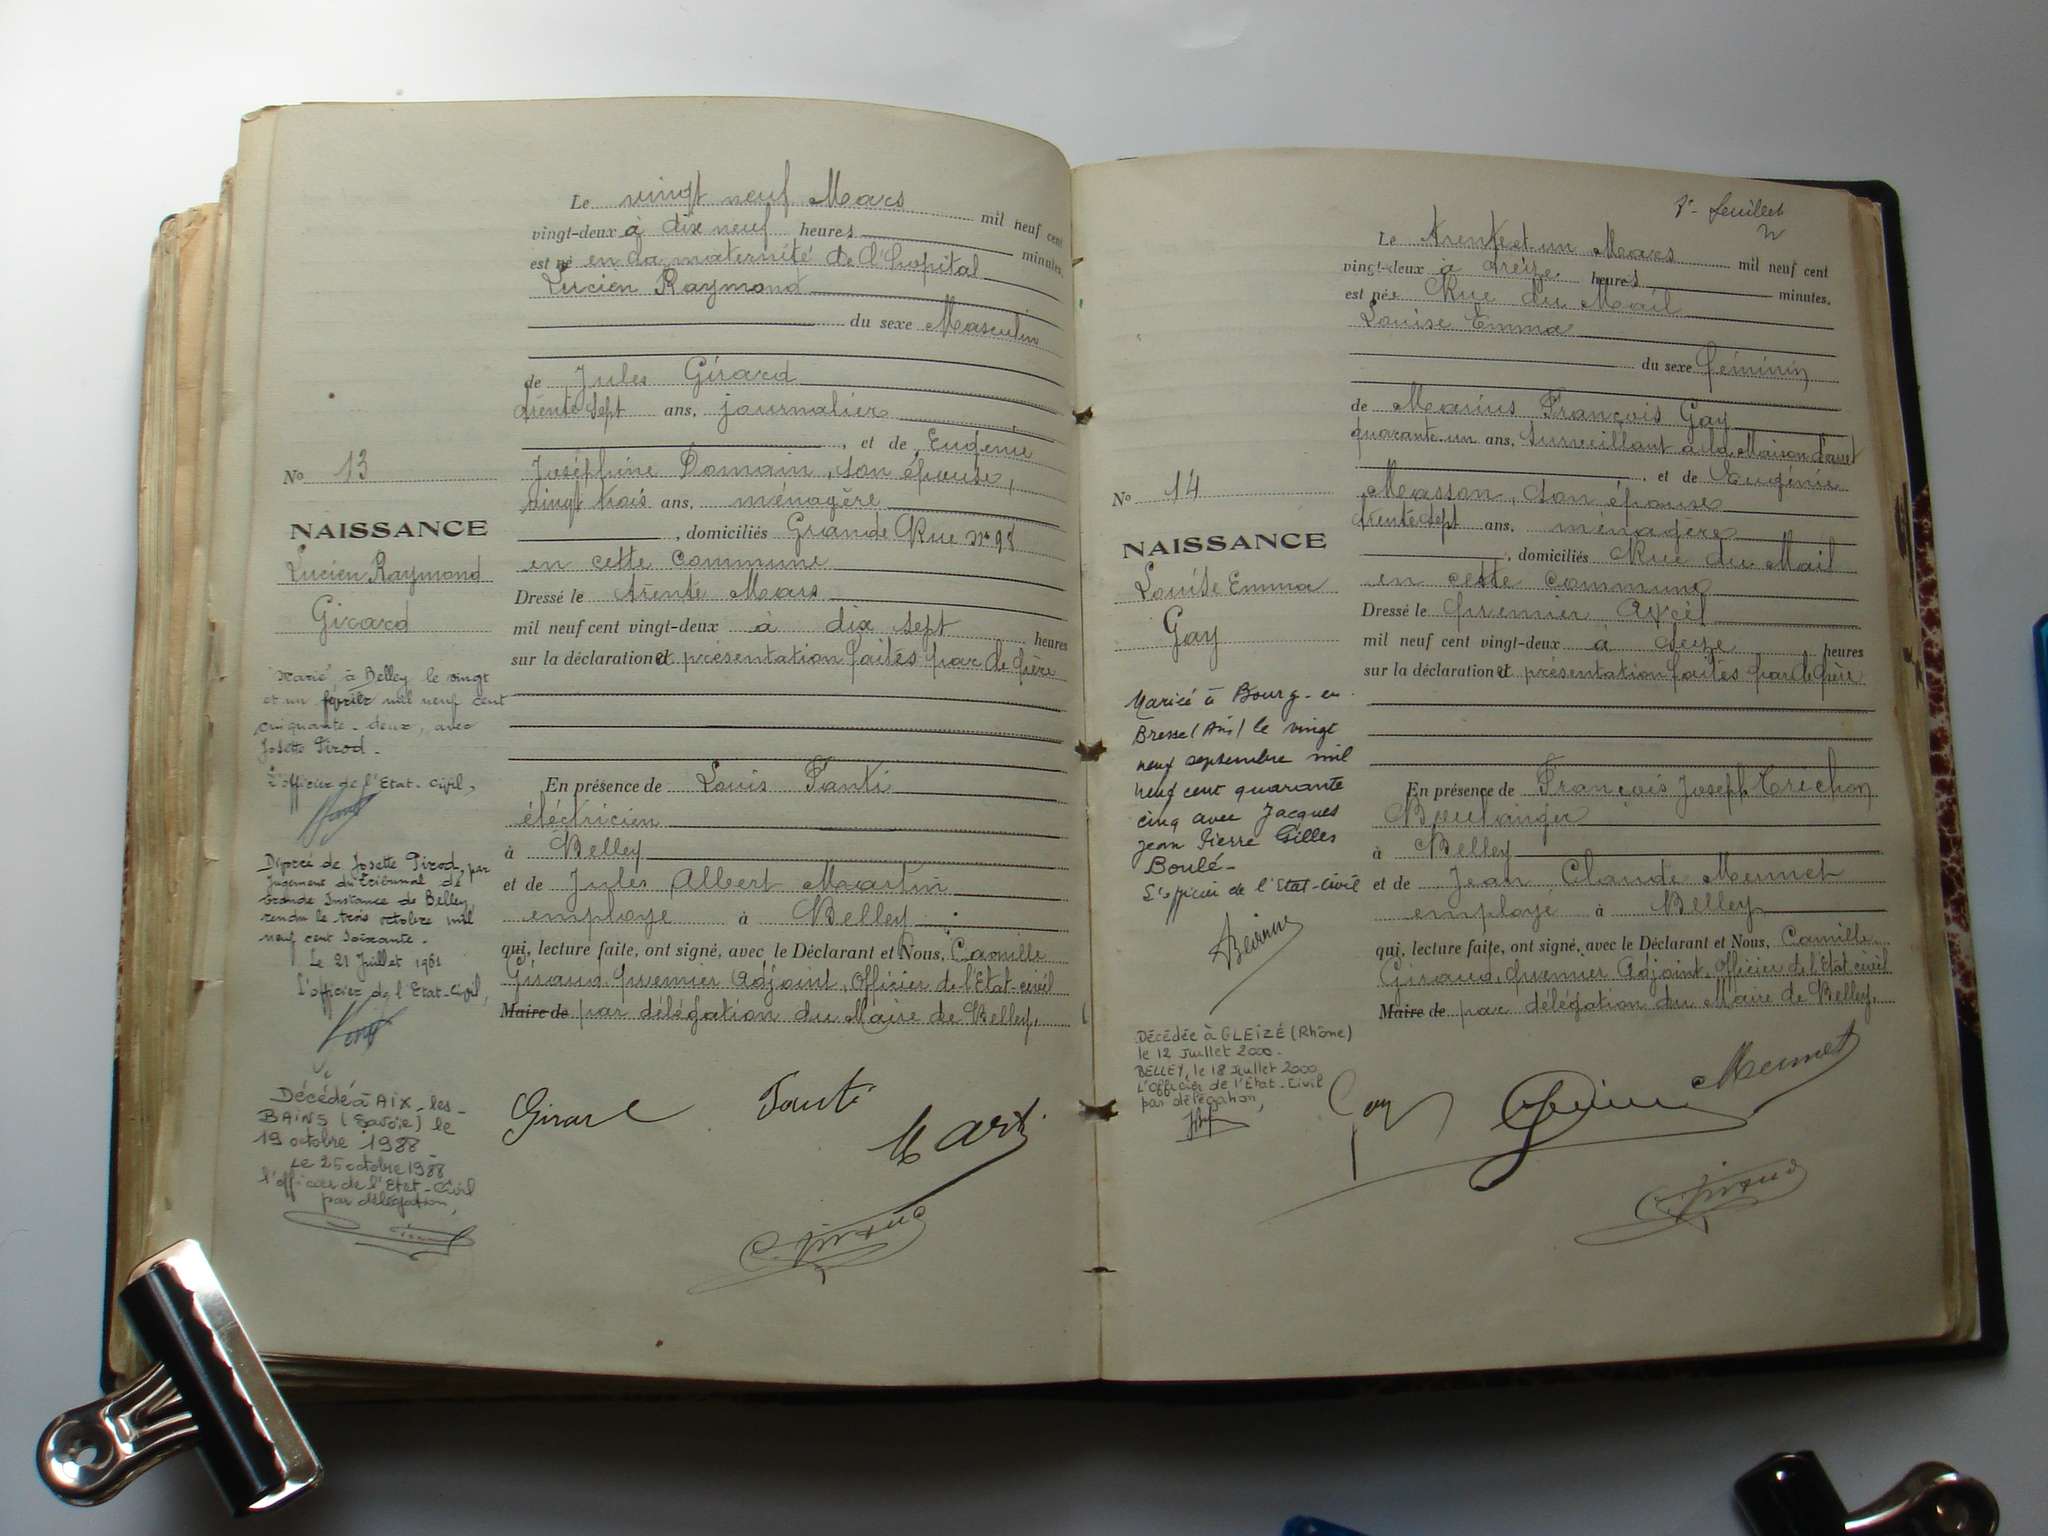 Le vingt neuf Mars mil neuf cent
vingt-deux à dix neuf heures minutes
est né en la maternité de l'hopital
Lucien Raymond
du sexe Masculin
de Jules Girard
trente sept ans, journalier
, et de Eugénie
Joséphine Romain, son épouse,
vingt trois ans, ménagère
, domiciliés Grande Rue n° 98
en cette commune
Dressé le trente Mars
mil neuf cent vingt-deux à dix sept heures
sur la déclaration et présentation faites par le père
En présence de Louis
électricien
à Belley
et de Jules Albert Martin
employé à Belley
qui, lecture faite, ont signé, avec le Déclarant et Nous, Camille
Giraud premier Adjoint, Officier de l'Etat-civil
Maire de par délégation du Maire de Belley.
No 13
NAISSANCE
Lucien Raymond
Girard
Marié à Belley le vingt
et un février mil neuf cent
cinquante-deux, avec
Josette Pirod-
L'officier de l'Etat-Civil,
Divorcé de Josette Pirod, par
Jugement du Tribunal de
Grande Instance de Belley,
rendu le trois octobre mil
neuf cent soixante-
Le 21 Juillet 1961
L'officier de l'Etat-Civil,
Décédé à AIX-les-
BAINS (Savoie) le
19 octobre 1988-
Le 25 octobre 1988
l'officier de l'Etat-Civil
par délégation,
Girard
C. Giraud
7e feuillet
Le trente et un Mars mil neuf cent
vingt-deux à treize heures minutes.
est née Rue du Mail
Louise Emma
du sexe féminin
de Marius François Gay
quarante-un ans, surveillant à la Maison d'arrêt
, et de Eugénie
Masson, son épouse
trente sept ans, ménagère
, domiciliés Rue du Mail
en cette commune
Dressé le premier Avril
mil neuf cent vingt-deux à heures
sur la déclaration et présentation faites par le père
En présence de François Joseph Trichon
Boulanger
à Belley
et de Jean Claude Mermet
employé à Belley
qui, lecture faite, ont signé, avec le Déclarant et Nous, Camille
Giraud, premier Adjoint, Officier de l'Etat civil
Maire de par délégation du Maire de Belley.
No 14
NAISSANCE
Louise Emma
Gay
Mariée à Bourg-en-
Bresse (Ain) le vingt
neuf septembre mil
neuf cent quarante
cinq avec Jacques
Jean Pierre Gilles
Boulé-
L'officier de l'Etat-Civil
Décédée à GLEIZÉ (Rhône)
le 12 Juillet 2000-
BELLEY, le 18 Juillet 2000
L'Officier de l'Etat-Civil
par délégation,
Gay
Mermet
C. Giraud